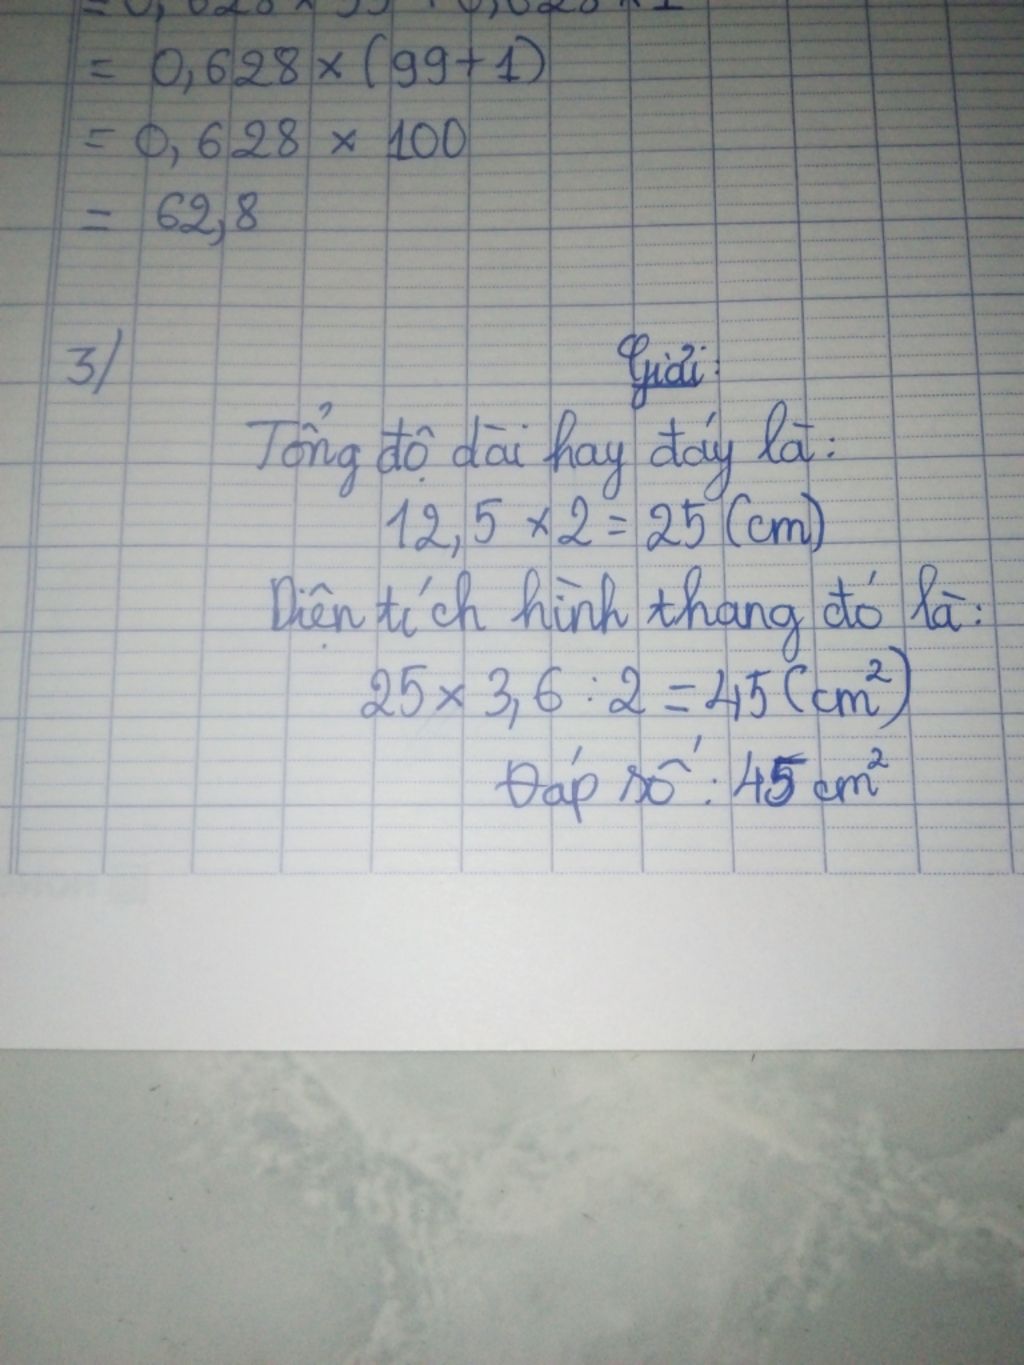 = 0,628 × 99 + 0,628 × 1
= 0,628 × (99+1)
= 0,628 × 100
= 62,8
3/ Giải:
Tổng độ dài hay đáy là:
12,5 × 2 = 25 (cm)
Diện tích hình thang đó là:
25 × 3,6 : 2 = 45 (cm²)
Đáp số : 45 cm²